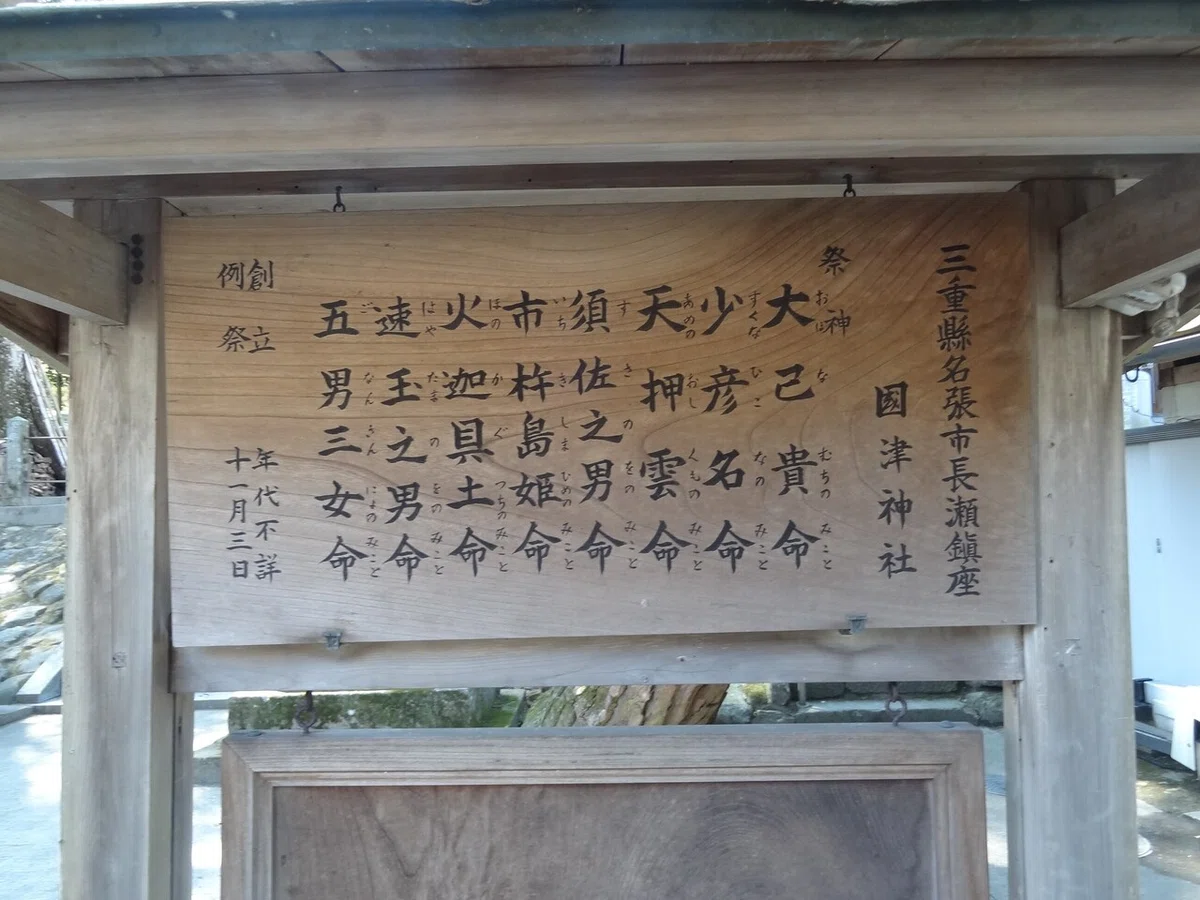 三重縣名張市長瀬鎭座
國津神社
祭神
大己貴命
おほなむちのみこと
少彦名命
すくなひこなのみこと
天押雲命
あめのおしくものみこと
須佐之男命
すさのをのみこと
市杵島姫命
いちきしまひめのみこと
火迦具土命
ほのかぐつちのみこと
速玉之男命
はやたまのをのみこと
五男三女命
ごなんさんにょのみこと
創立 年代不詳
例祭 十一月三日